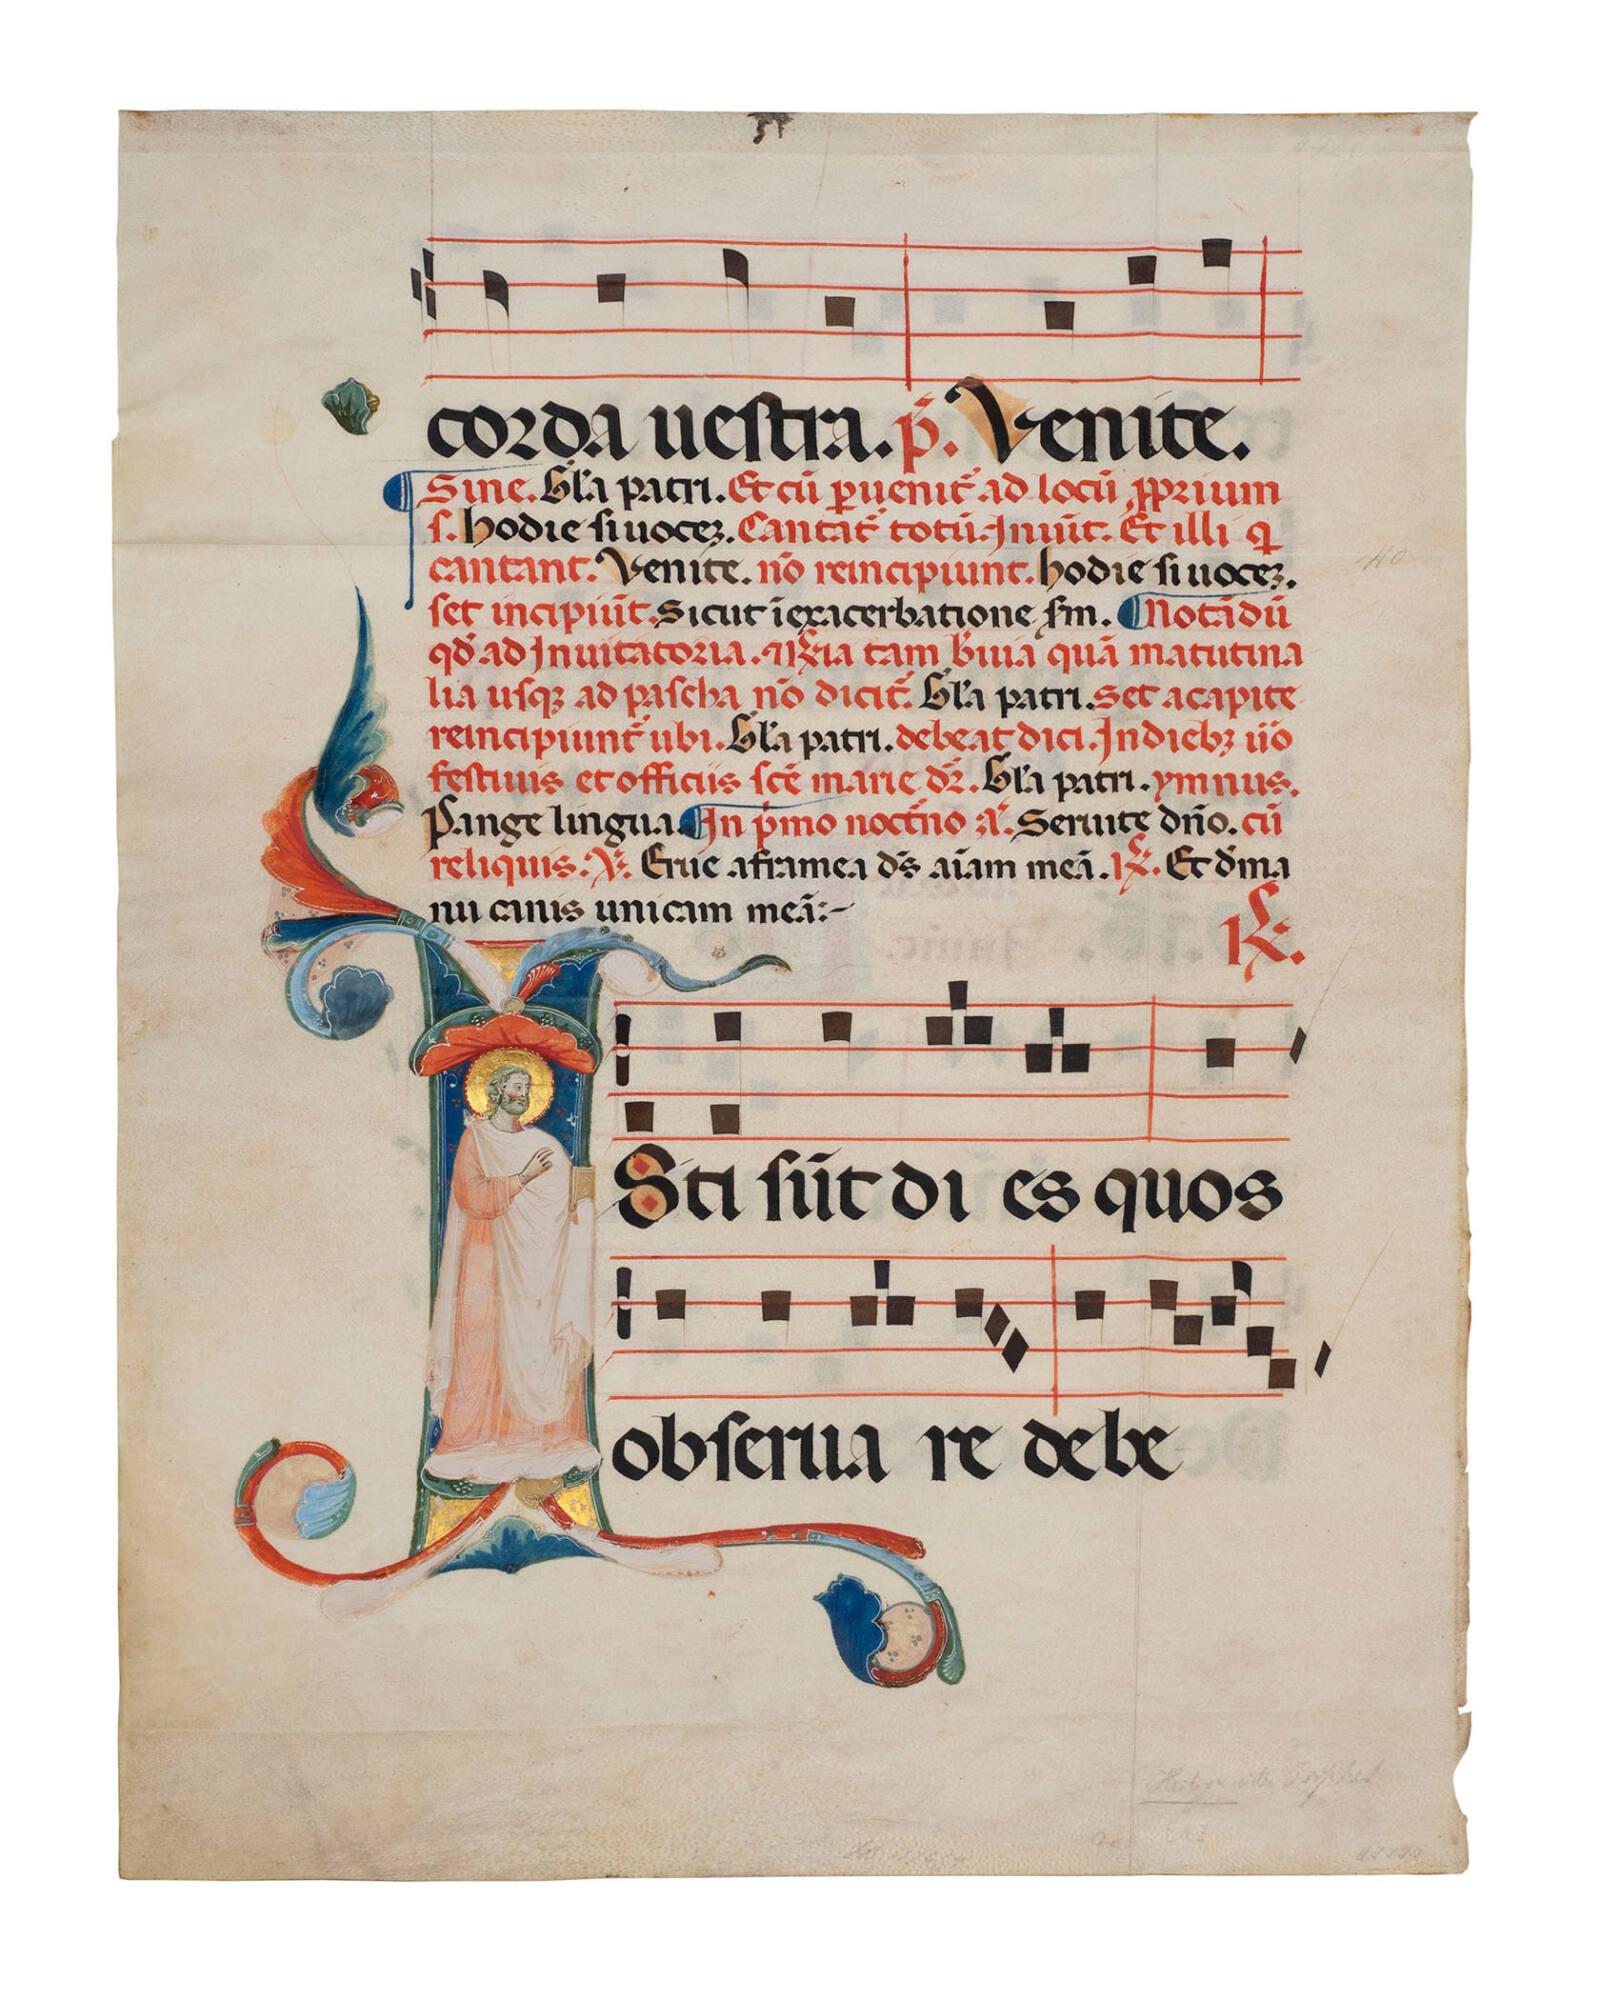 corda uestra. p̄. Venite.
Sine. Gl'a patri. Et cū ꝑuenit̄ ad locū ꝓprium
s. hodie si uocez. Cantat̄ totū Inuit̄. Et illi q
cantant. Venite. nō reincipiunt. hodie si uocez.
set incipiūt. Sicut ī exacerbatione sm. Notādū
qd̄ ad Inuitatoria. ℟ia tam b̄uia quā matutina
lia usqꝫ ad pascha nō dicit̄. Gl'a patri. Set a capite
reincipiunt̄ ubi. Gl'a patri. debeat dici. In diebꝫ ūo
festiuis et officiis scē marie dr̄. Gl'a patri. ymnus.
Pange lingua. In p̄mo noct̄no a. Seruite dn̄o. cū
reliquis. ℣. Erue a framea ds̄ aīam meā. ℟. Et d̄ma
nu canis unicam meā:~
℟.
ISti sūt di es quos
obserua re debe
40